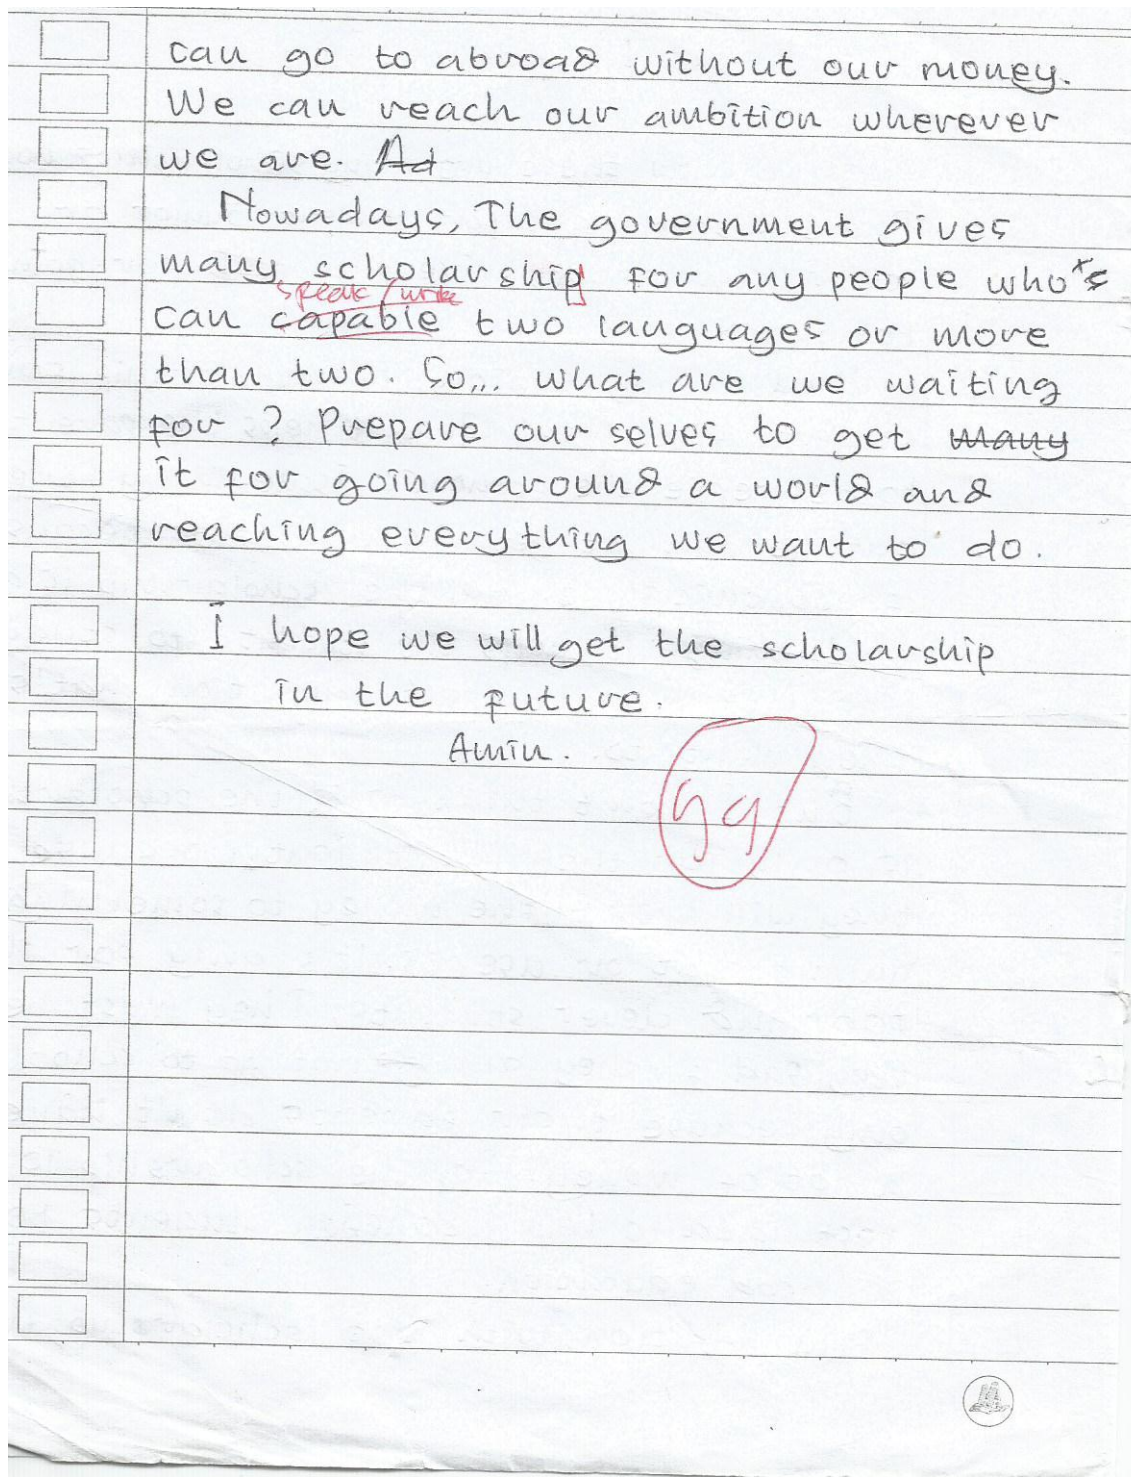 can go to abroad without our money.
We can reach our ambition wherever
we are. Ad
Nowadays, The government gives
many scholarship for any people who's
speak / write
can capable two languages or more
than two. So,,, what are we waiting
for ? Prepare our selves to get many
it for going around a world and
reaching everything we want to do.
I hope we will get the scholarship
in the future.
Amin.